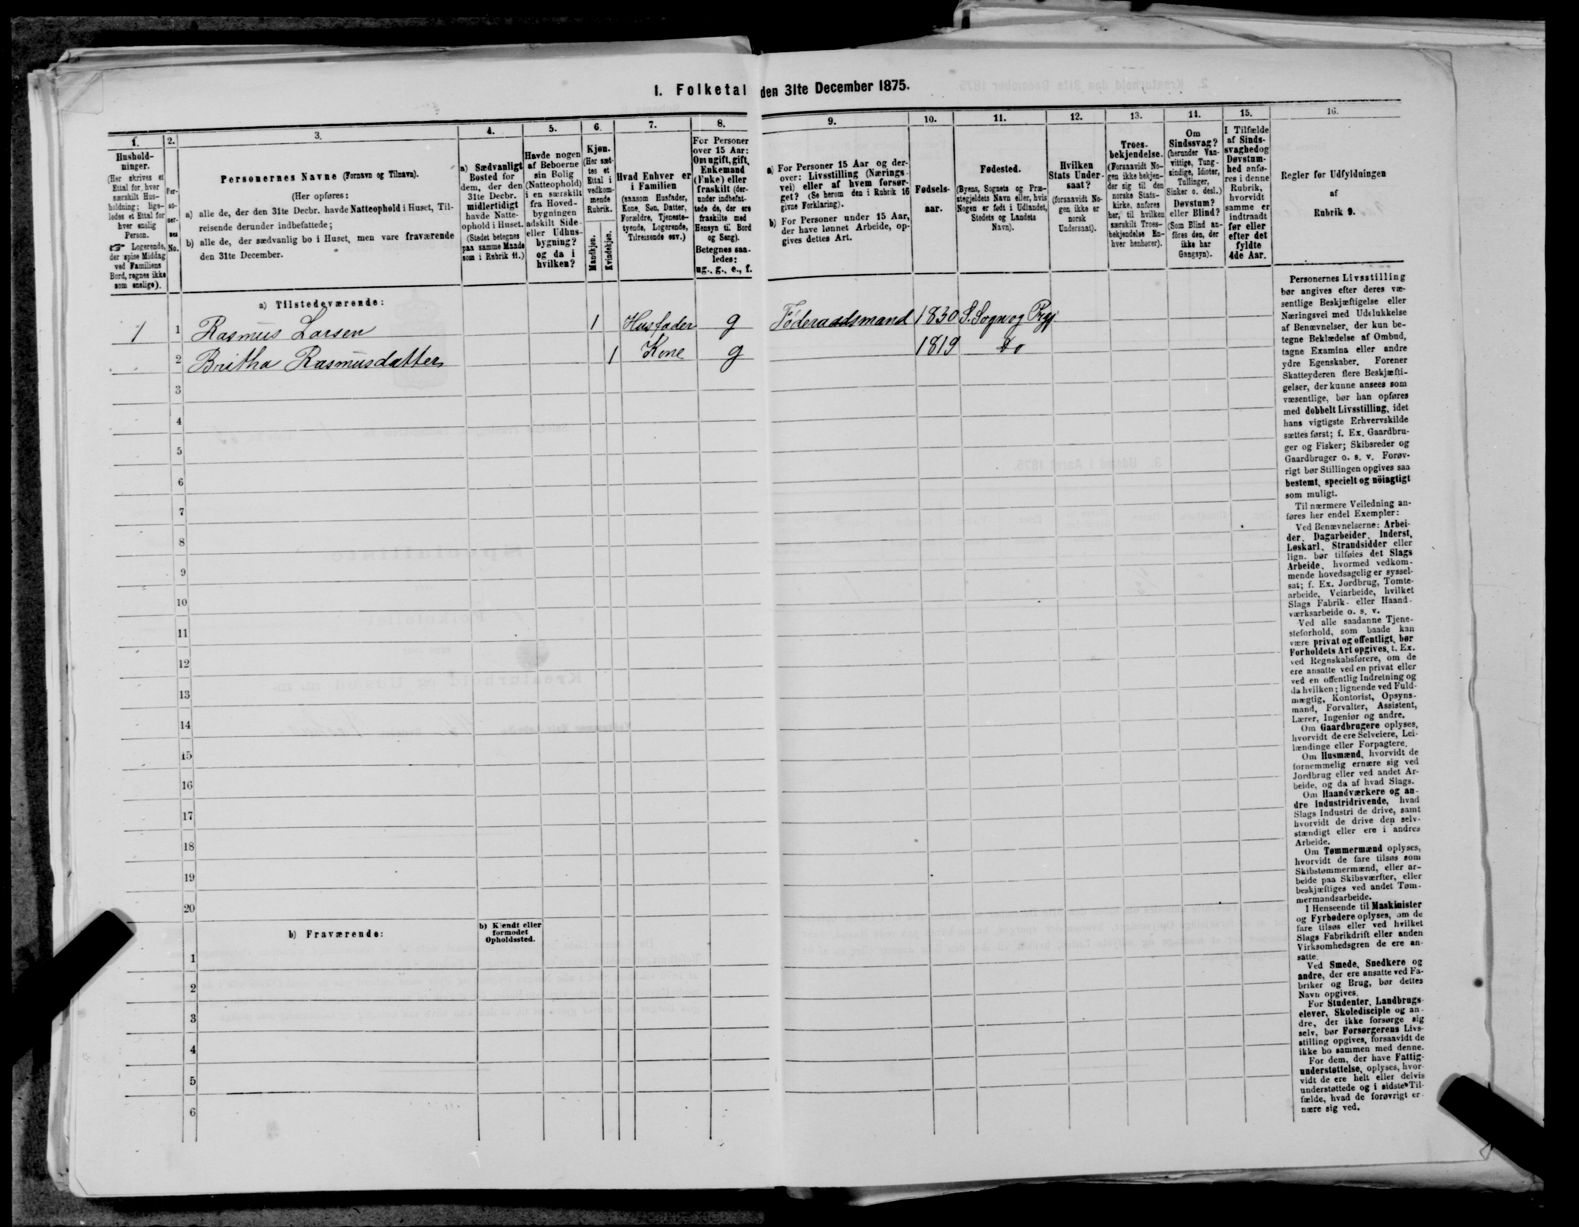 I. Folketal den 31te December 1875.
1.
Hushold-
ninger.
(Her skrives et
Ettal for hver
særskilt Hus-
holdning; lige-
ledes et Ettal for
hver enslig
Person.
☞ Logerende,
der spise Middag
ved Familiens
Bord, regnes ikke
som enslige).
2.
Per-
so-
ner-
nes
No.
3.
Personernes Navne (Fornavn og Tilnavn).
(Her opføres:
a) alle de, der den 31te Decbr. havde Natteophold i Huset, Til-
reisende derunder indbefattede;
b) alle de, der sædvanlig bo i Huset, men vare fraværende
den 31te December.
4.
a) Sædvanligt
Bosted for
dem, der den
31te Decbr.
midlertidigt
havde Natte-
ophold i Huset.
(Stedet betegnes
paa samme Maade
som i Rubrik 11.)
5.
Havde nogen
af Beboerne
sin Bolig
(Natteophold)
i en særskilt
fra Hoved-
bygningen
adskilt Side-
eller Udhus-
bygning?
og da i
hvilken?
6.
Kjøn.
(Her sæt-
tes et
Ettal i
vedkom-
mende
Rubrik.
Mandkjøn.
Kvindekjøn.
7.
Hvad Enhver er
i Familien
(saasom Husfader,
Kone, Søn, Datter,
Forældre, Tjeneste-
tyende, Logerende,
Tilreisende osv.)
8.
For Personer
over 15 Aar:
Om ugift, gift,
Enkemand
(Enke) eller
fraskilt (der-
under indbefat-
tede de, der ere
fraskilte med
Hensyn til Bord
og Seng).
Betegnes saa-
ledes:
ug., g., e., f.
9.
a) For Personer 15 Aar og der-
over: Livsstilling (Nærings-
vei) eller af hvem forsør-
get? (Se herom den i Rubrik 16
givne Forklaring).
b) For Personer under 15 Aar,
der have lønnet Arbeide, op-
gives dettes Art.
10.
Fødsels-
aar.
11.
Fødested.
(Byens, Sognets og Præ-
stegjeldets Navn eller, hvis
Nogen er født i Udlandet,
Stedets og Landets
Navn).
12.
Hvilken
Stats Under-
saat?
(forsaavidt No-
gen ikke er
norsk
Undersaat).
13.
Troes-
bekjendelse.
(Forsaavidt No-
gen ikke bekjen-
der sig til den
norske Stats-
kirke, anføres
her, til hvilken
særskilt Troes-
bekjendelse En-
hver henhører).
14.
Om
Sindssvag?
(herunder Van-
vittige, Tung-
sindige, Idioter,
Tullinger,
Sinker o. desl.)
Døvstum?
eller Blind?
(Som Blind an-
føres den, der
ikke har
Gangsyn).
15.
I Tilfælde
af Sinds-
svaghed og
Døvstum-
hed anfø-
res i denne
Rubrik,
hvorvidt
samme er
indtraadt
før eller
efter det
fyldte
4de Aar.
16.
Regler for Udfyldningen
af
Rubrik 9.
a) Tilstedeværende:
1 1 Rasmus Larsen 1 Husfader g Føderaadsmand 1830 S. Sogn og Prgj
2 Britha Rasmusdatter 1 Kone g 1819 Do
3
4
5
6
7
8
9
10
11
12
13
14
15
16
17
18
19
20
b) Fraværende:
b) Kjendt eller
formodet
Opholdssted.
1
2
3
4
5
6
Personernes Livsstilling
bør angives efter deres væ-
sentlige Beskjæftigelse eller
Næringsvei med Udelukkelse
af Benævnelser, der kun be-
tegne Beklædelse af Ombud,
tagne Examina eller andre
ydre Egenskaber. Forener
Skatteyderen flere Beskjæfti-
gelser, der kunne ansees som
væsentlige, bør han opføres
med dobbelt Livsstilling, idet
hans vigtigste Erhvervskilde
sættes først; f. Ex. Gaardbru-
ger og Fisker; Skibsreder og
Gaardbruger o. s. v. Forøv-
rigt bør Stillingen opgives saa
bestemt, specielt og nöiagtigt
som muligt.
Til nærmere Veiledning an-
føres her endel Exempler:
Ved Benævnelserne: Arbei-
der, Dagarbeider, Inderst,
Løskarl, Strandsidder eller
lign. bør tilføies det Slags
Arbeide, hvormed vedkom-
mende hovedsagelig er syssel-
sat; f. Ex. Jordbrug, Tomte-
arbeide, Veiarbeide, hvilket
Slags Fabrik- eller Haand-
værksarbeide o. s. v.
Ved alle saadanne Tjene-
steforhold, som baade kan
være privat og offentligt, bør
Forholdets Art opgives, t. Ex.
ved Regnskabsførere, om de
ere ansatte ved en privat eller
ved en offentlig Indretning og
da hvilken; lignende ved Fuld-
mægtig, Kontorist, Opsyns-
mand, Forvalter, Assistent,
Lærer, Ingeniør og andre.
Om Gaardbrugere oplyses,
hvorvidt de ere Selveiere, Lei-
lændinge eller Forpagtere.
Om Husmænd, hvorvidt de
fornemmelig ernære sig ved
Jordbrug eller ved andet Ar-
beide, og da af hvad Slags.
Om Haandværkere og an-
dre Industridrivende, hvad
Slags Industri de drive, samt
hvorvidt de drive den selv-
stændigt eller ere i andres
Arbeide.
Om Tømmermænd oplyses,
hvorvidt de fare tilsøs som
Skibstømmermænd, eller ar-
beide paa Skibsværfter, eller
beskjæftiges ved andet Tøm-
mermandsarbeide.
I Henseende til Maskinister
og Fyrbødere oplyses, om de
fare tilsøs eller ved hvilket
Slags Fabrikdrift eller anden
Virksomhedsgren de ere an-
satte.
Ved Smede, Snedkere og
andre, der ere ansatte ved Fa-
briker og Brug, bør dettes
Navn opgives.
For Studenter, Landbrugs-
elever, Skoledisciple og an-
dre, der ikke forsørge sig
selv, bør Forsørgerens Livs-
stilling opgives, forsaavidt de
ikke bo sammen med denne.
For dem, der have Fattig-
understøttelse, oplyses, hvor-
vidt de ere helt eller delvis
understøttede og i sidste Til-
fælde, hvad de forøvrigt er-
nære sig ved.